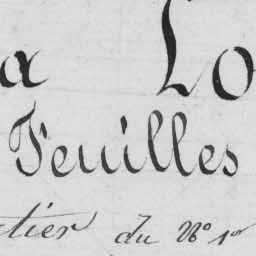 a Lo
Feuilles
tier du N° 1er